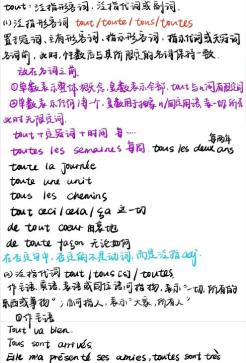 tout: 泛指形容词、泛指代词或副词.
(1) 泛指形容词 tout/toute/tous/toutes
置于冠词、主有形容词、指示形容词、指示代词或无冠词
名词前, 此时, 性数应与其所限定的名词保持一致.
放在名词之前
①单数表示整体概念, 复数表示全部, tous与n.间有冠词
②单数表示任何/每个, 复数
此时无限定词.
tout + 冠词 + 时间 每
toutes les semaines 每周 tous les deux ans 每两年
toute la journée
toute une unit
tous les chemins
tout ceci/cela/ça 这一切
de tout coeur 由衷地
de toute façon 无论如何
在名词中, 而是泛指adj.
(2) 泛指代词 tout/tous [s]/toutes
作主语、宾语、表语或同位语, 可指物, 表示"一切, 所有的
东西或事物"; 亦可指人, 表示"大家, 所有人"
①作主语
Tout va bien.
Tous sont arrivés.
Elle m'a présenté ses amies, toutes sont très